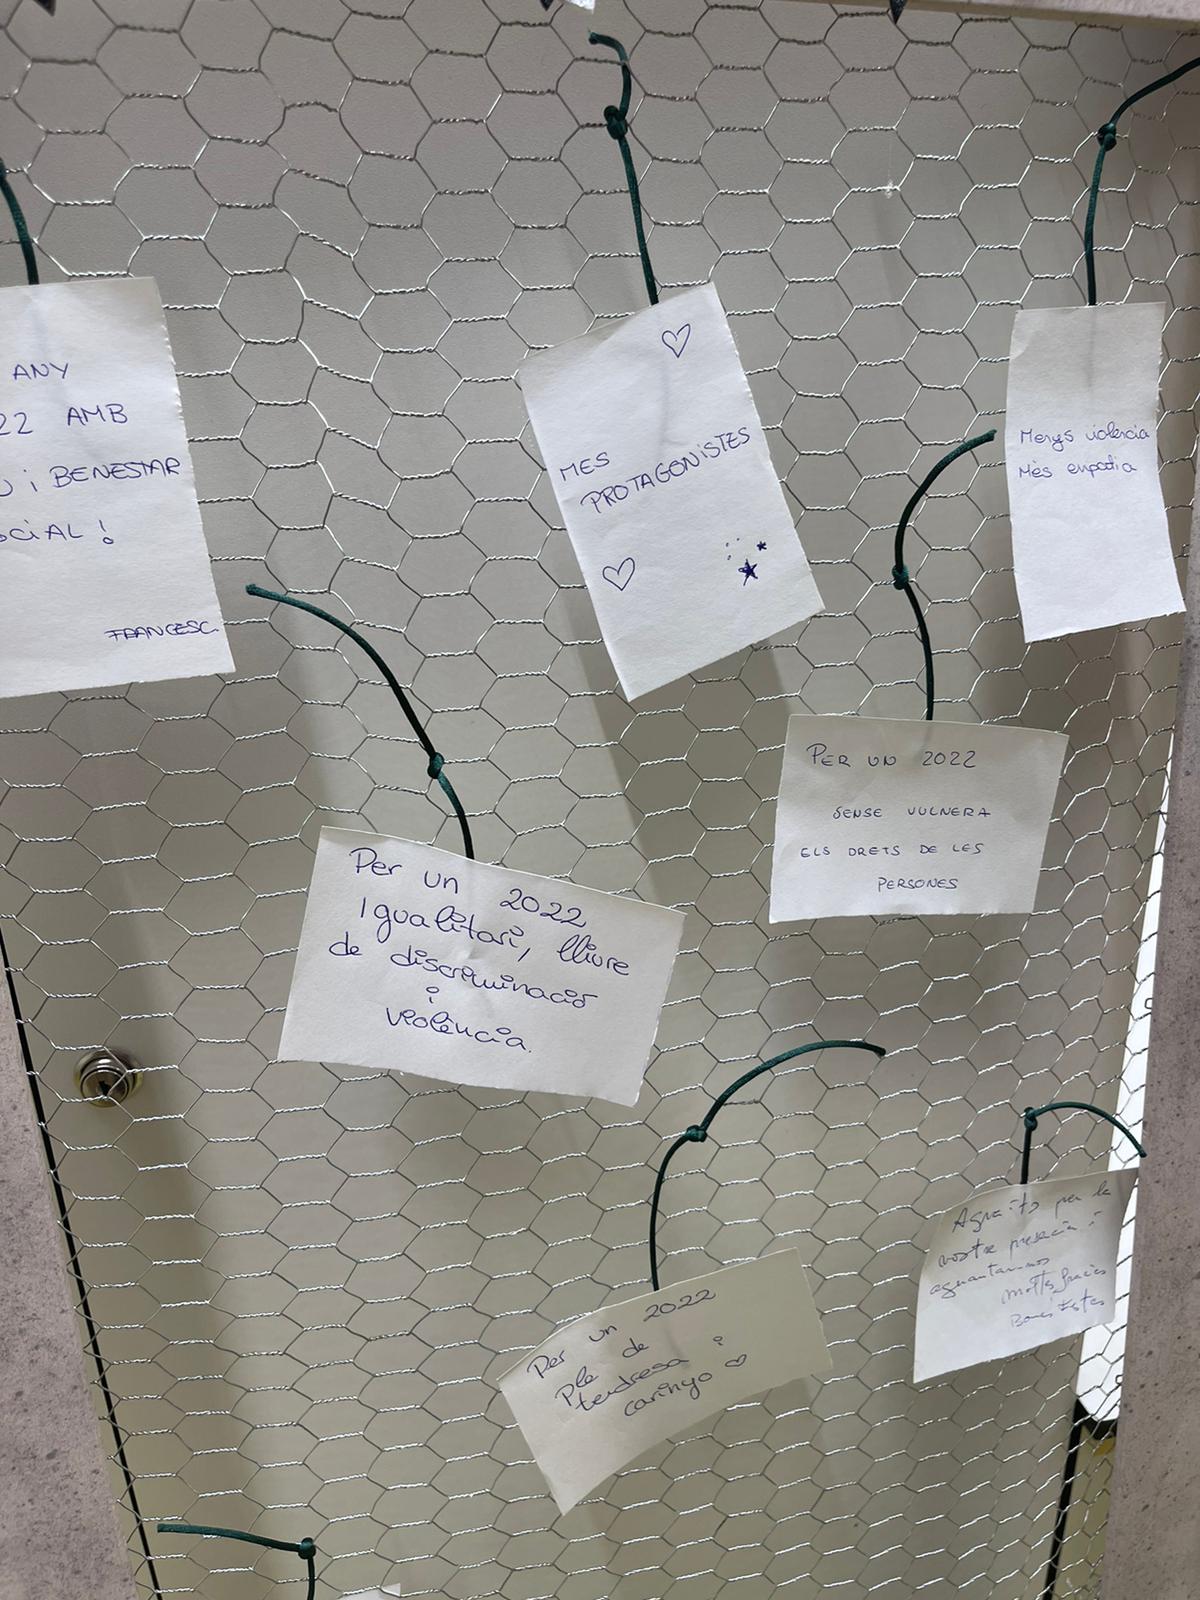 ANY
22 AMB
U i BENESTAR
OCiAL!
FRANCESC.
MES
PROTAGONiSTES
Menys violencia
Més empatia
PER UN 2022
SENSE VULNERA
ELS DRETS DE LES
PERSONES
Per un 2022
Igualitari, lliure
de discriminació
i
violència.
Per un 2022
ple de
tendresa i
carinyo
per la
nostre presència i
aguantar-nos
Moltes gracies
Bones Festes